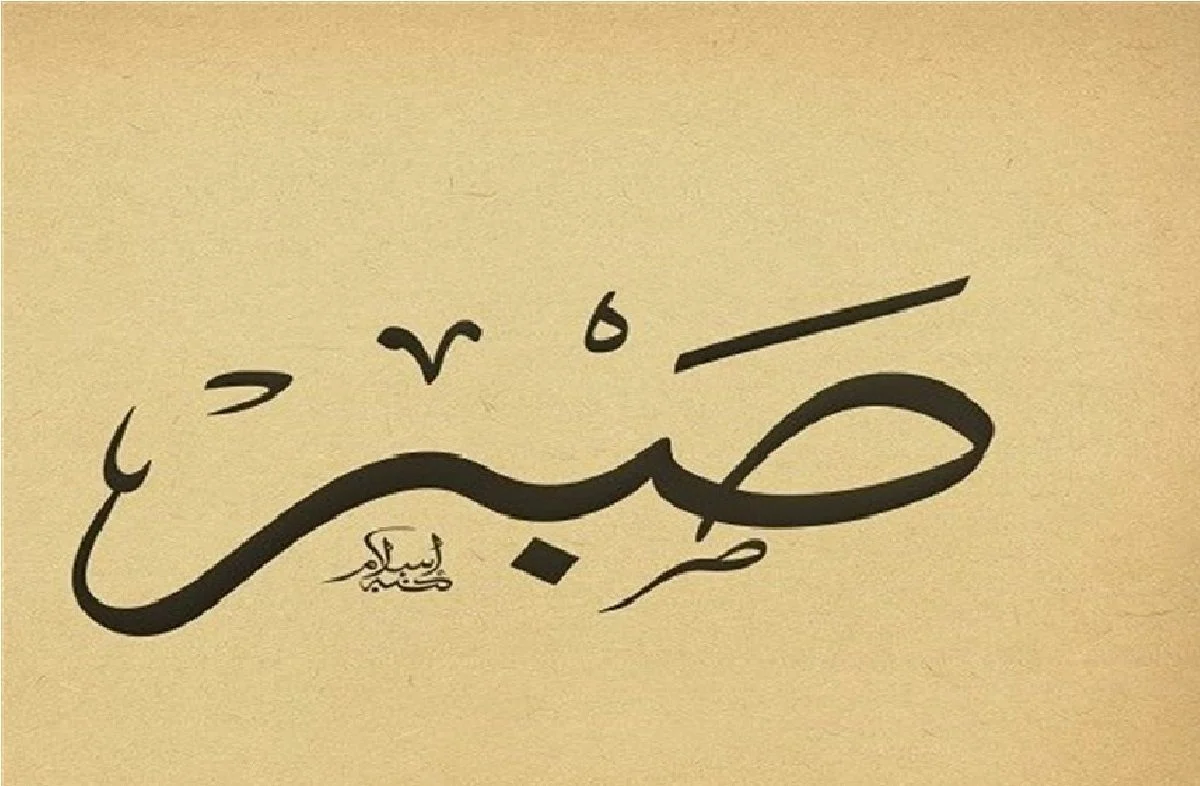 صَبْر
كتبه اسلام